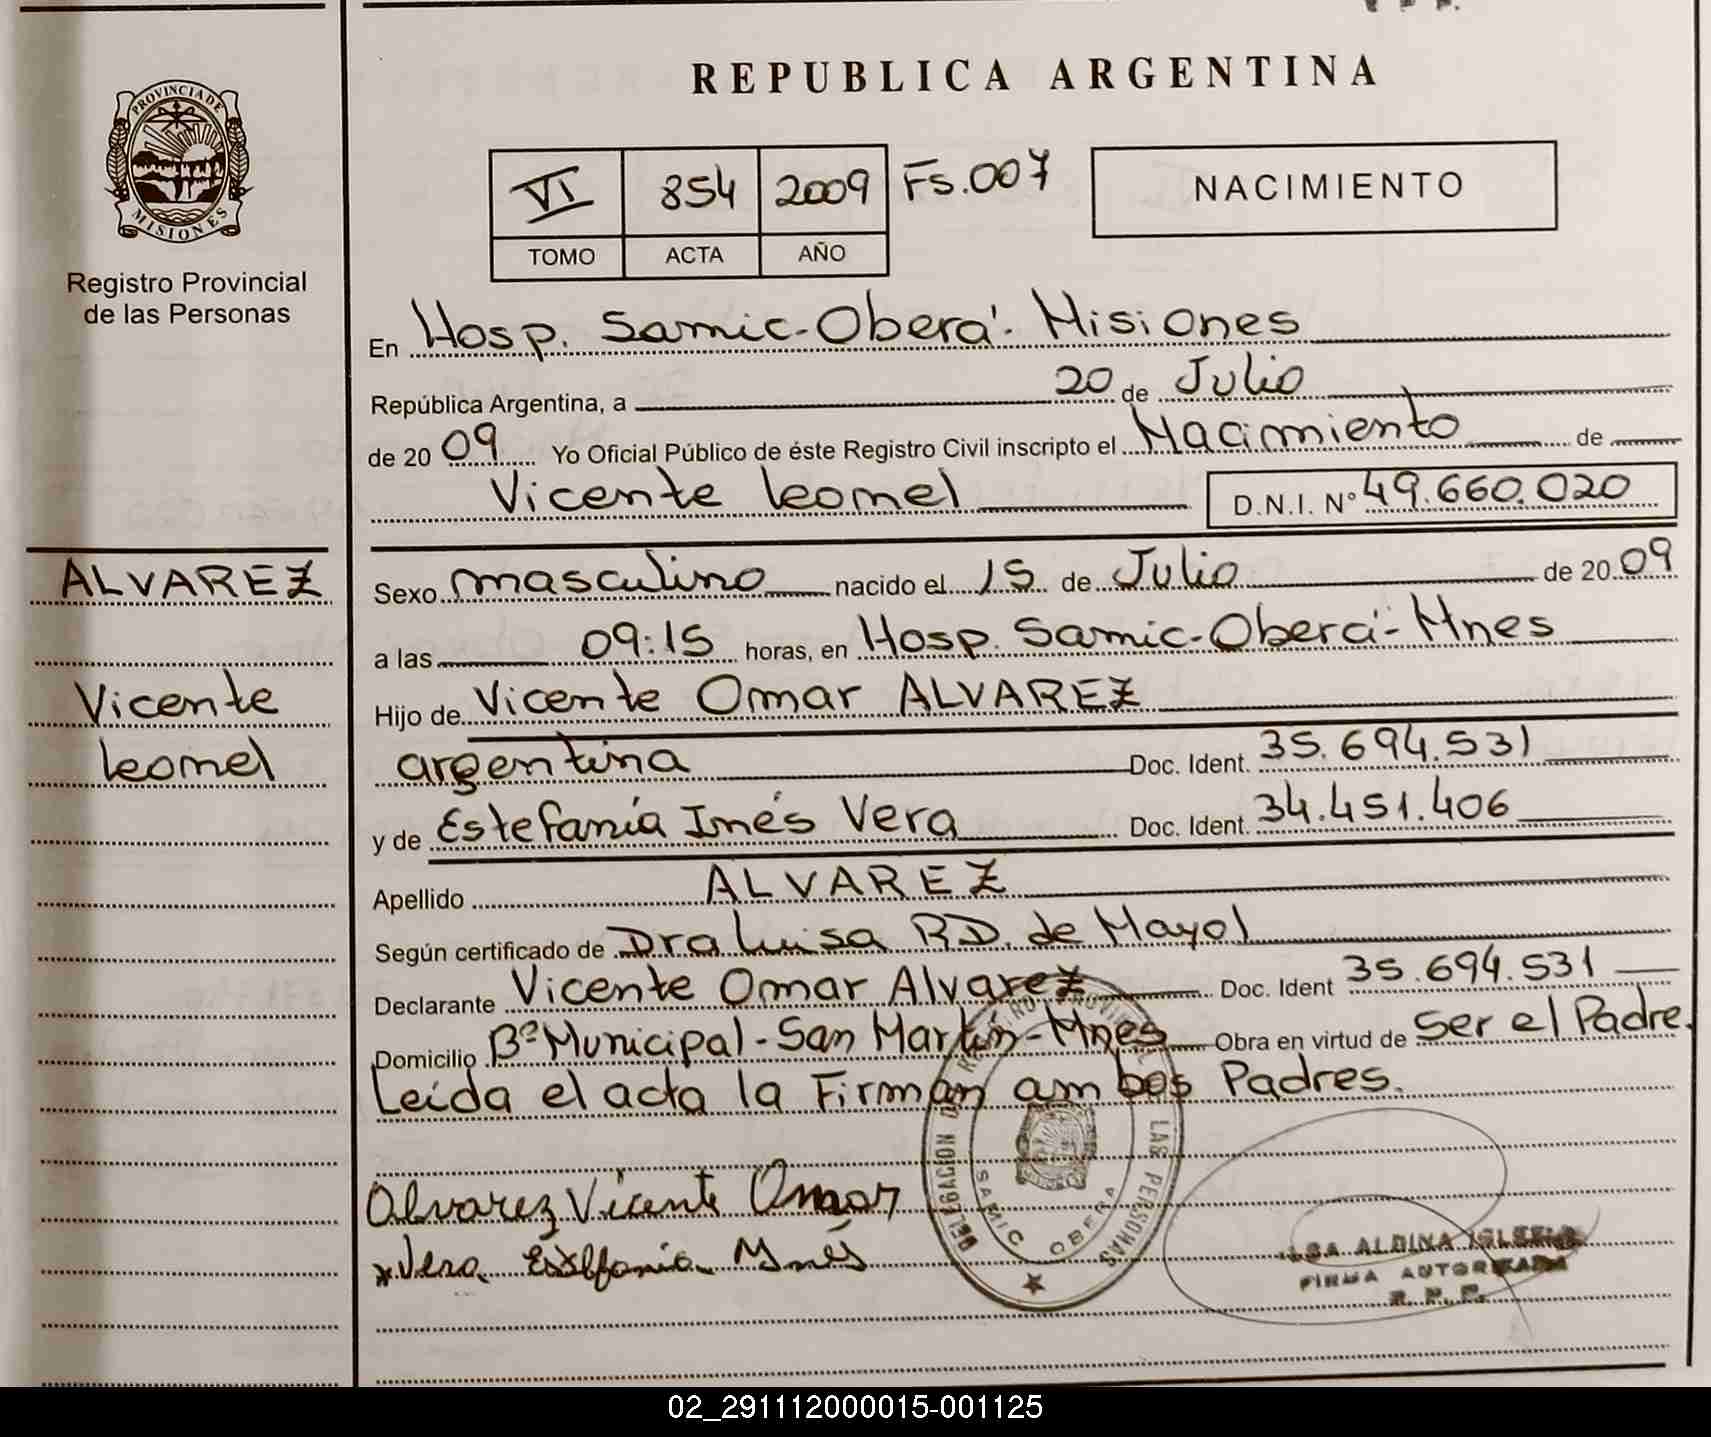 REPUBLICA ARGENTINA
PROVINCIA DE MISIONES
Registro Provincial
de las Personas
VI 854 2009 Fs.007
TOMO ACTA AÑO
NACIMIENTO
En Hosp. Samic-Oberá-Misiones
República Argentina, a 20 de Julio
de 2009 Yo Oficial Público de éste Registro Civil inscripto el Nacimiento de
Vicente Leonel D.N.I. Nº 49.660.020
ALVAREZ
Vicente
Leonel
Sexo masculino nacido el 15 de Julio de 2009
a las 09:15 horas, en Hosp. Samic-Oberá-Mnes
Hijo de Vicente Omar ALVAREZ
argentina Doc. Ident. 35.694.531
y de Estefanía Inés Vera Doc. Ident. 34.451.406
Apellido ALVAREZ
Según certificado de Dra Luisa RD. de Mayol
Declarante Vicente Omar Alvarez Doc. Ident 35.694.531
Domicilio Bº Municipal-San Martín-Mnes Obra en virtud de ser el Padre.
Leída el acta la Firman ambos Padres.
Alvarez Vicente Omar
x Vera Estefania Ynés
SAMIC OBERA
LAS PERSONAS
ALDINA IGLESIAS
FIRMA AUTORIZADA
R. P. P.
02_291112000015-001125